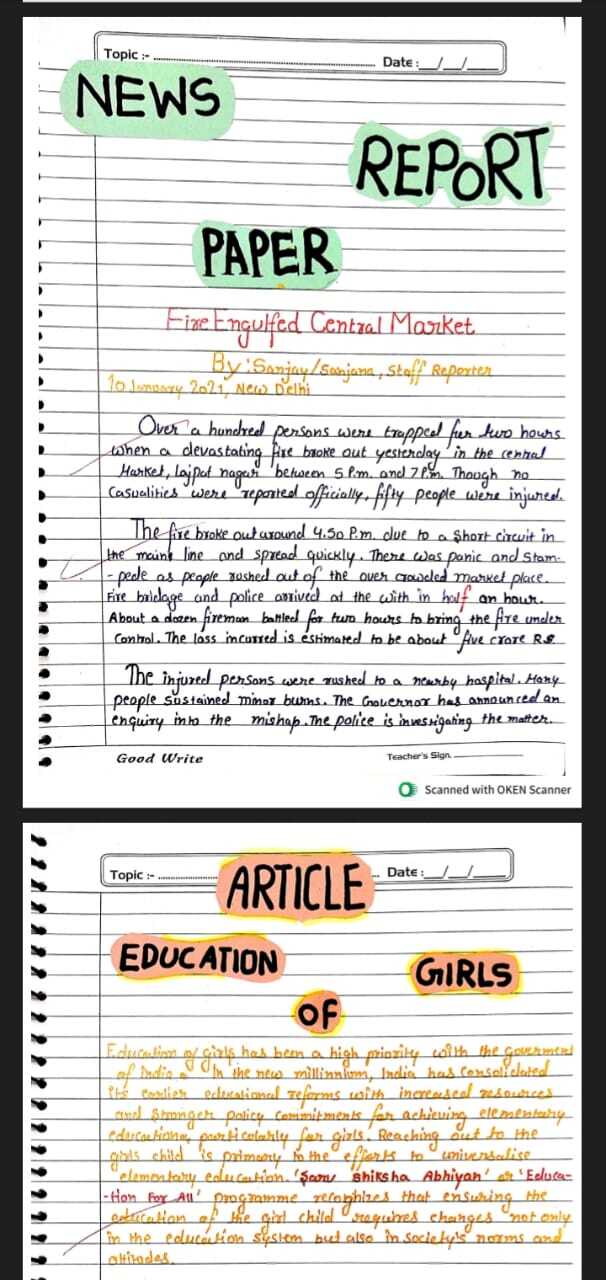 Topic :- Date :__/__/____
NEWS
REPORT
PAPER
Fire Engulfed Central Market
By : Sanjay/Sanjana, Staff Reporter
10 January 2021, New Delhi
Over a hundred persons were trapped for two hours
when a devastating fire broke out yesterday in the central
Market, lajpat nagar between 5 P.m. and 7 P.m. Though no
Casualities were reported officially, fifty people were injured.
The fire broke out around 4.50 P.m. due to a Short circuit in
the maine line and spread quickly. There was panic and Stam-
-pede as people rushed out of the over crowded market place.
Fire bridage and police arrived at the with in half an hour.
About a dozen fireman battled for two hours to bring the fire under
Control. The loss incurred is estimated to be about five crore RS.
The injured persons were rushed to a nearby hospital. Many
people Sustained minor burns. The Governor has announced an
enquiry into the mishap. The police is investigating the matter.
Good Write Teacher's Sign.
Scanned with OKEN Scanner
Topic :- Date :__/__/____
ARTICLE
EDUCATION
GIRLS
OF
Education of girls has been a high priority with the goverment
of India. In the new millinnium, India has consolidated
its earlier educational reforms with increased resources
and Stronger policy commitments for achieving elementary
particolarly for girls. Reaching out to the
girls child is primary to the efforts to universalise
elementary education. 'Sarv Shiksha Abhiyan' or 'Educa-
-tion For All' programme recognizes that ensuring the
education of the girl child requires changes not only
in the education System but also in society's norms and
attitudes.